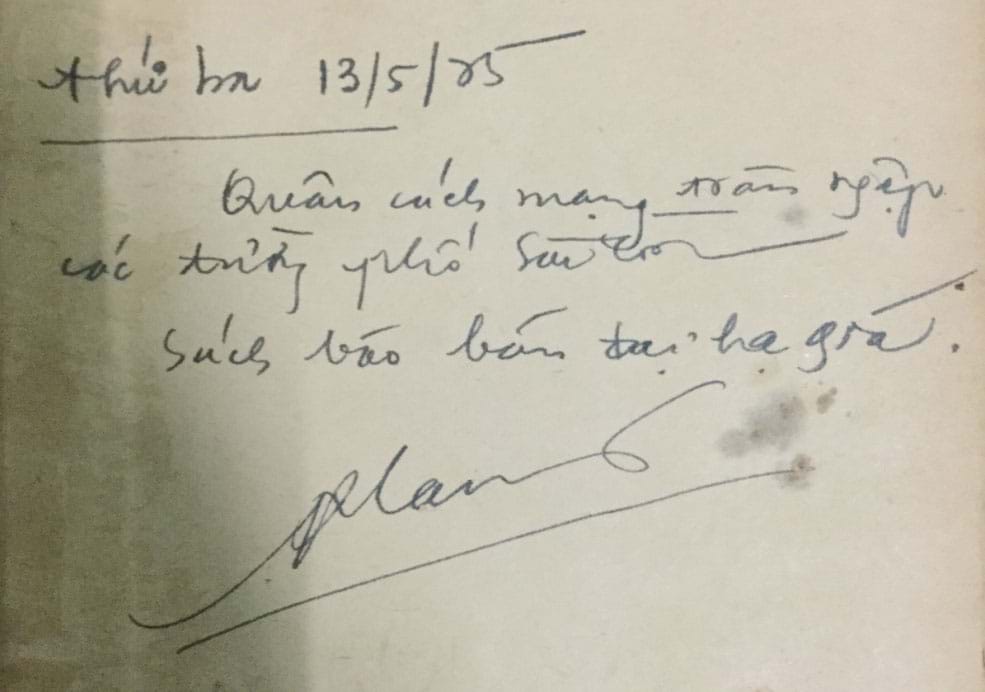 thứ ba 13/5/75
Quân cách mạng tràn ngập
các đường phố Sài Gòn
Sách báo bán đại hạ giá.